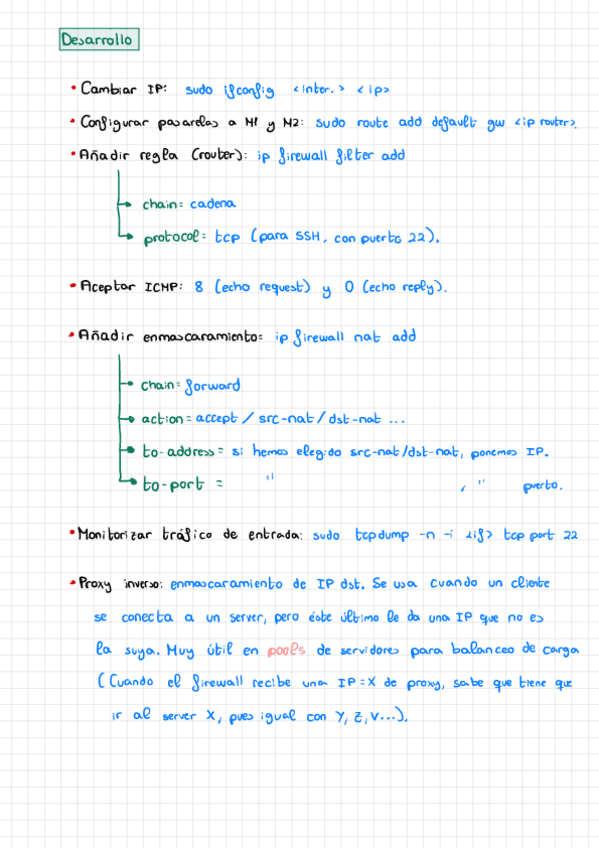 Desarrollo
• Cambiar IP: sudo ifconfig <inter.> <ip>
• Configurar pasarelas a M1 y M2: sudo route add default gw <ip router>.
• Añadir regla (router): ip firewall filter add
chain = cadena
protocol = tcp (para SSH, con puerto 22).
• Aceptar ICMP: 8 (echo request) y 0 (echo reply).
• Añadir enmascaramiento = ip firewall nat add
chain = forward
action = accept / src-nat / dst-nat ...
to-address = si hemos elegido src-nat/dst-nat, ponemos IP.
to-port = " , " puerto.
• Monitorizar tráfico de entrada: sudo tcpdump -n -i <if> tcp port 22
• Proxy inverso: enmascaramiento de IP dst. Se usa cuando un cliente
se conecta a un server, pero éste último le da una IP que no es
la suya. Muy útil en pools de servidores para balanceo de carga
(Cuando el firewall recibe una IP=X de proxy, sabe que tiene que
ir al server X, pues igual con Y, Z, V...).